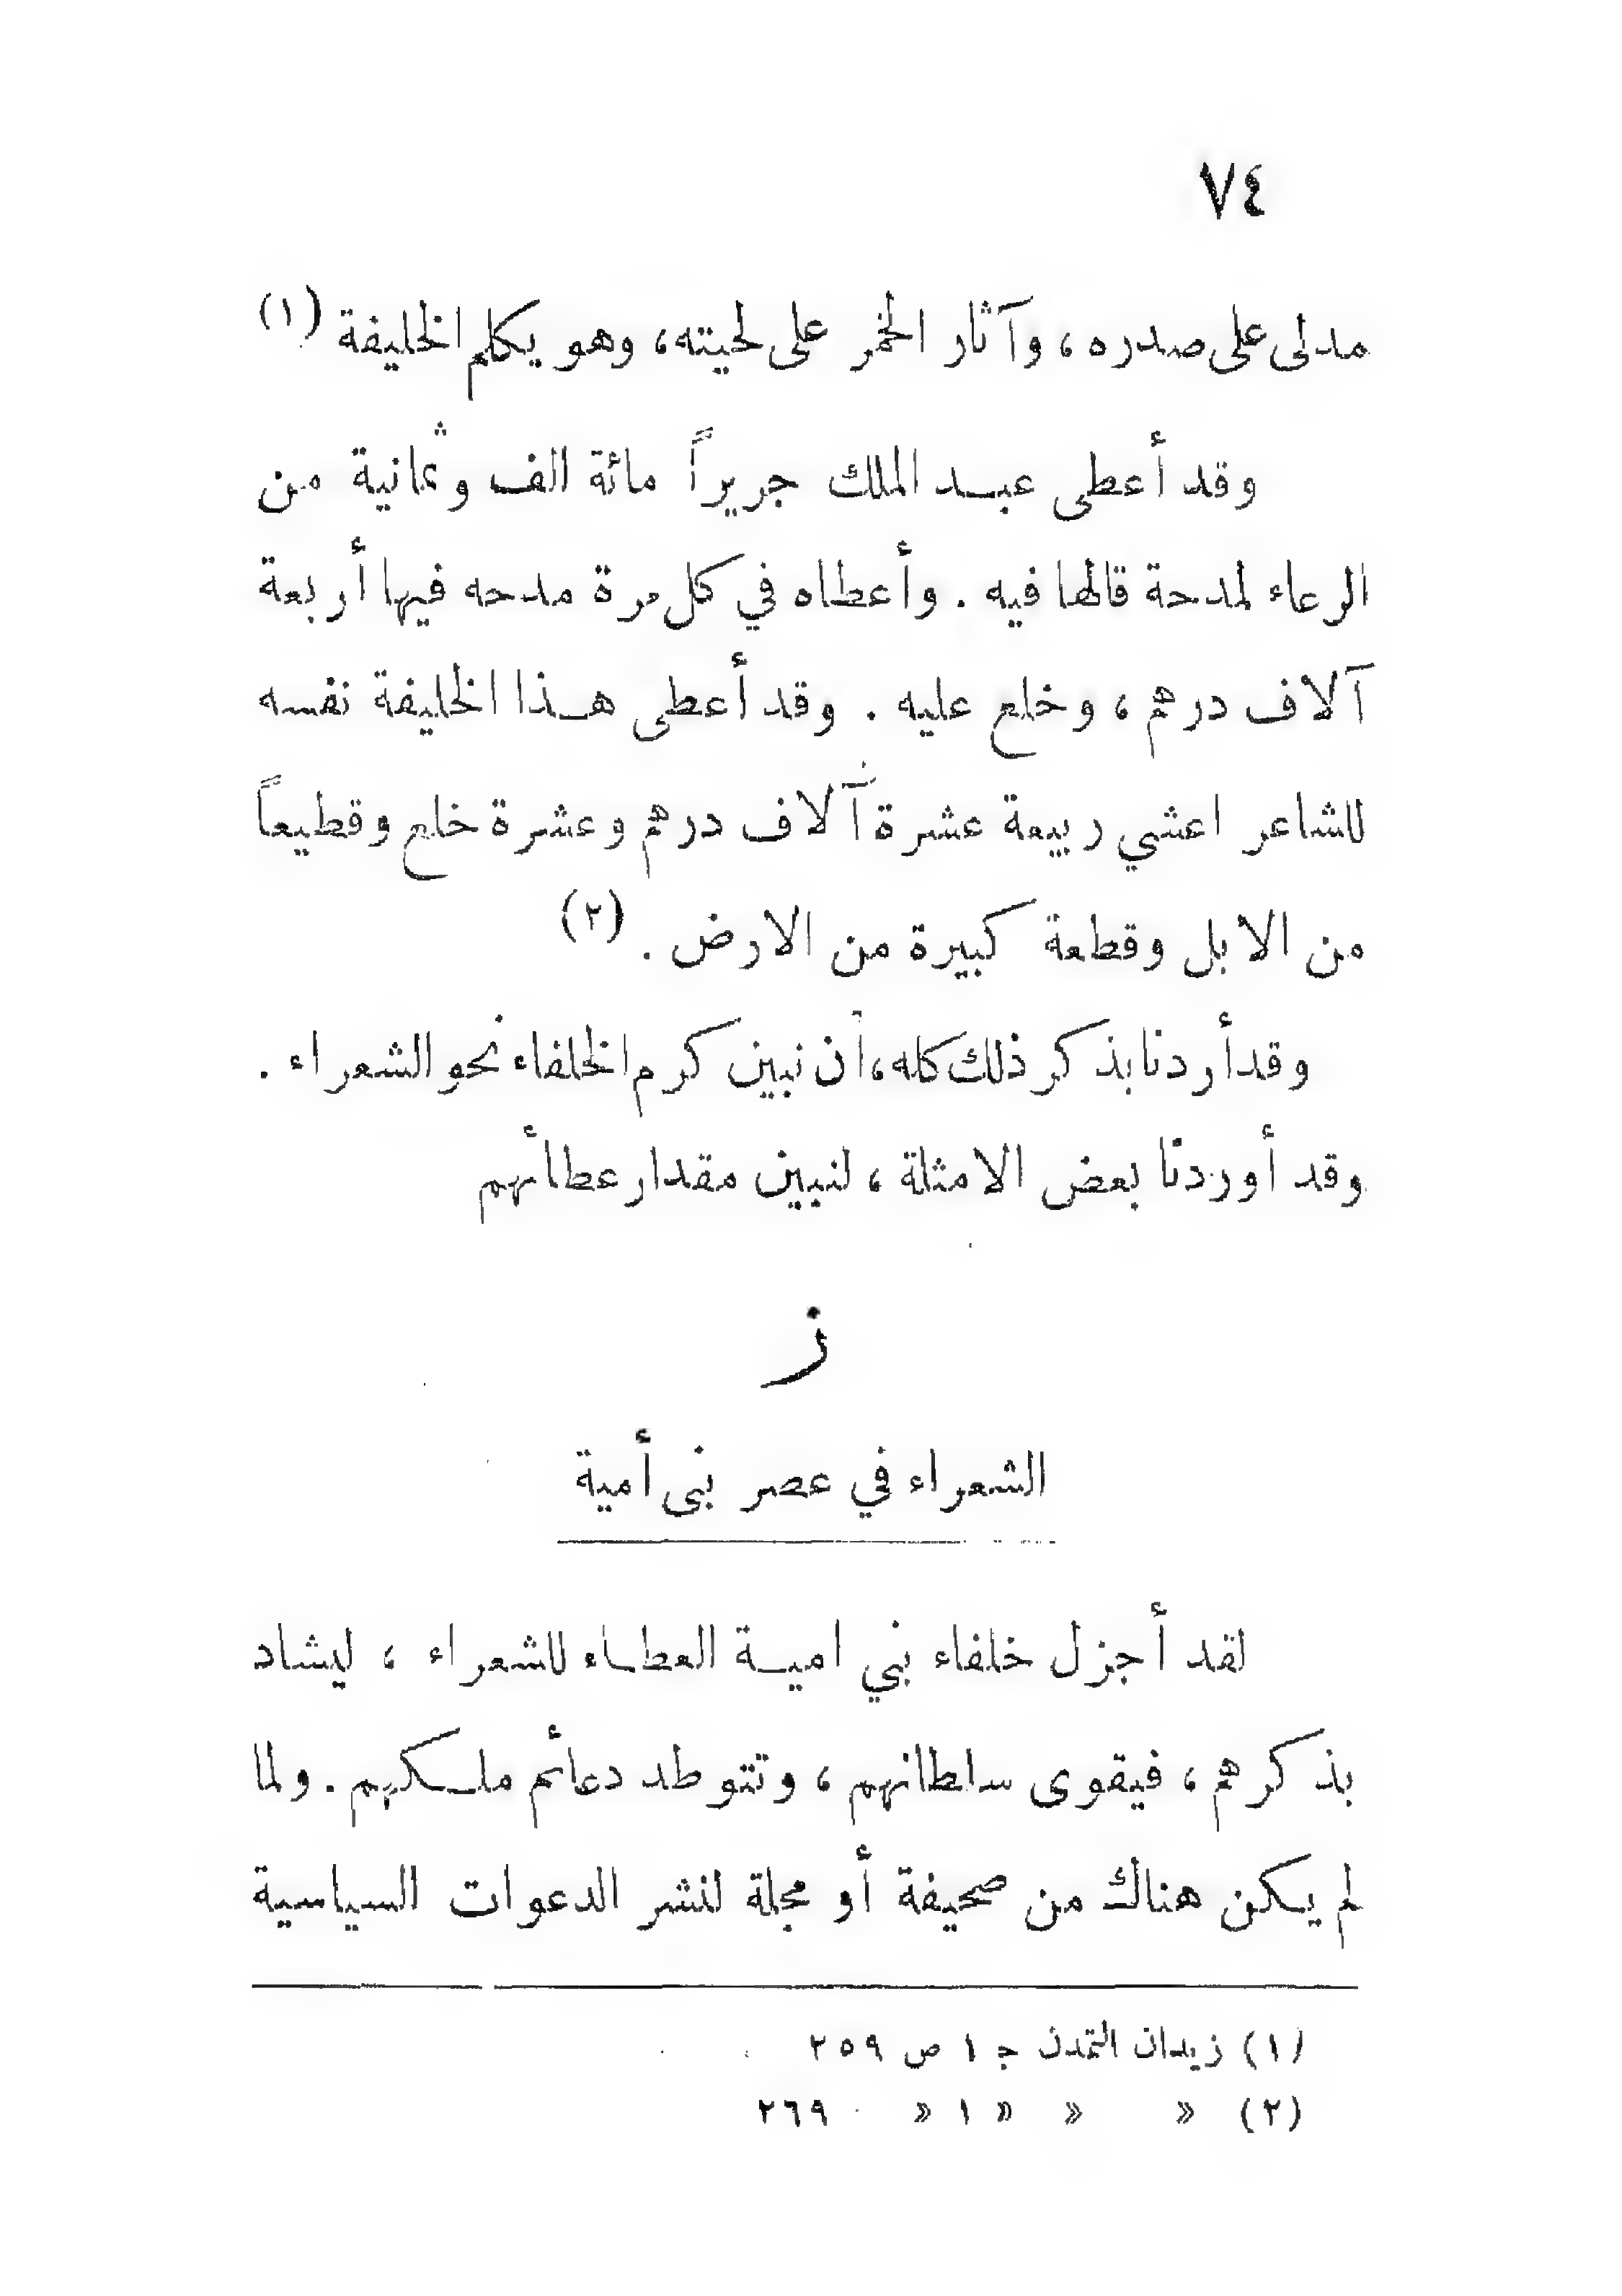 ٧٤
مدلى على صدره ، وآثار الخمر على لحيته ، وهو يكلم الخليفة (١)
وقد أعطى عبد الملك جريراً مائة الف وثمانية من
الرعاء لمدحة قالها فيه . وأعطاه في كل مرة مدحه فيها أربعة
آلاف درهم ، وخلع عليه . وقد أعطى هذا الخليفة نفسه
للشاعر اعشي ربيعة عشرة آلاف درهم وعشرة خلع وقطيعاً
من الابل وقطعة كبيرة من الارض . (٢)
وقد أردنا بذكر ذلك كله ، أن نبين كرم الخلفاء نحو الشعراء .
وقد أوردنا بعض الامثلة ، لنبين مقدار عطائهم
ز
الشعراء في عصر بنى أمية
لقد أجزل خلفاء بني امية العطاء للشعراء ، ليشاد
بذكرهم ، فيقوى سلطانهم ، وتتوطد دعائم ملكهم . ولما
لم يكن هناك من صحيفة أو مجلة لنشر الدعوات السياسية
(١) زيدان التمدن ج ١ ص ٢٥٩
(٢) » » » ١ » ٢٦٩